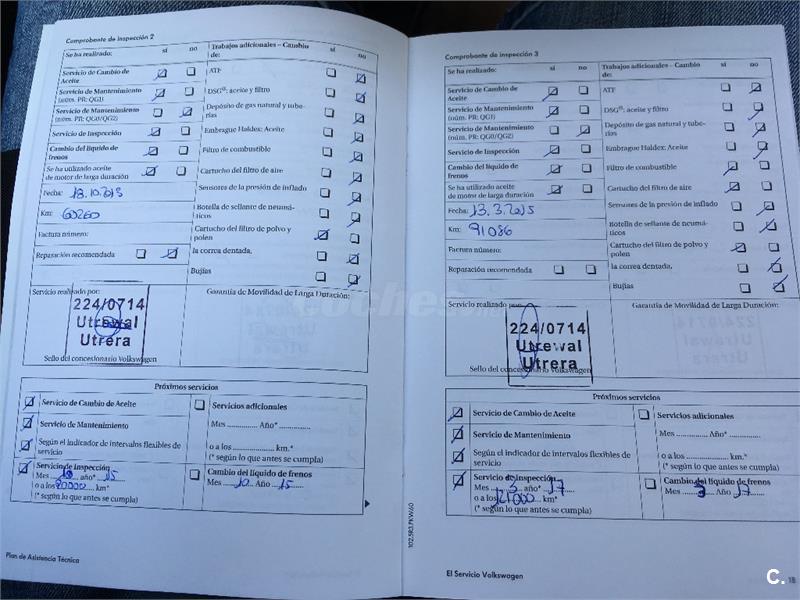 Comprobante de inspección 2
Se ha realizado: sí no
Trabajos adicionales – Cambio de: sí no
Servicio de Cambio de
Aceite
Servicio de Mantenimiento
(núm. PR: QG1)
Servicio de Mantenimiento
(núm. PR: QG0/QG2)
Servicio de Inspección
Cambio del líquido de
frenos
Se ha utilizado aceite
de motor de larga duración
Fecha: 18.10.2013
Km: 60260
Factura número:
Reparación recomendada
ATF
DSG®: aceite y filtro
Depósito de gas natural y tube-
rías
Embrague Haldex: Aceite
Filtro de combustible
Cartucho del filtro de aire
Sensores de la presión de inflado
Botella de sellante de neumá-
ticos
Cartucho del filtro de polvo y
polen
la correa dentada,
Bujías
Servicio realizado por:
224/0714
Utrewal
Utrera
Sello del concesionario Volkswagen
Garantía de Movilidad de Larga Duración:
Próximos servicios
Servicio de Cambio de Aceite
Servicio de Mantenimiento
Según el indicador de intervalos flexibles de
servicio
Servicio de inspección
Mes 10 año* 15
o a los 90000 km*
(* según lo que antes se cumpla)
Servicios adicionales
Mes Año
o a los km.*
(* según lo que antes se cumpla)
Cambio del líquido de frenos
Mes 10 Año 15
Plan de Asistencia Técnica
Comprobante de inspección 3
Se ha realizado: sí no
Trabajos adicionales – Cambio
de: sí no
Servicio de Cambio de
Aceite
Servicio de Mantenimiento
(núm. PR: QG1)
Servicio de Mantenimiento
(núm. PR: QG0/QG2)
Servicio de Inspección
Cambio del líquido de
frenos
Se ha utilizado aceite
de motor de larga duración
Fecha: 13.3.2015
Km: 91086
Factura número:
Reparación recomendada
ATF
DSG®: aceite y filtro
Depósito de gas natural y tube-
rías
Embrague Haldex: Aceite
Filtro de combustible
Cartucho del filtro de aire
Sensores de la presión de inflado
Botella de sellante de neumá-
ticos
Cartucho del filtro de polvo y
polen
la correa dentada,
Bujías
Servicio realizado por:
224/0714
Utrewal
Utrera
Sello del concesionario Volkswagen
Garantía de Movilidad de Larga Duración:
Próximos servicios
Servicio de Cambio de Aceite
Servicio de Mantenimiento
Según el indicador de intervalos flexibles de
servicio
Servicio de inspección
Mes 3 año* 17
o a los 121000 km*
(* según lo que antes se cumpla)
Servicios adicionales
Mes Año
o a los km.*
(* según lo que antes se cumpla)
Cambio del líquido de frenos
Mes 3 Año 17
102.5R3.PKW.60
El Servicio Volkswagen
18
coches
C.